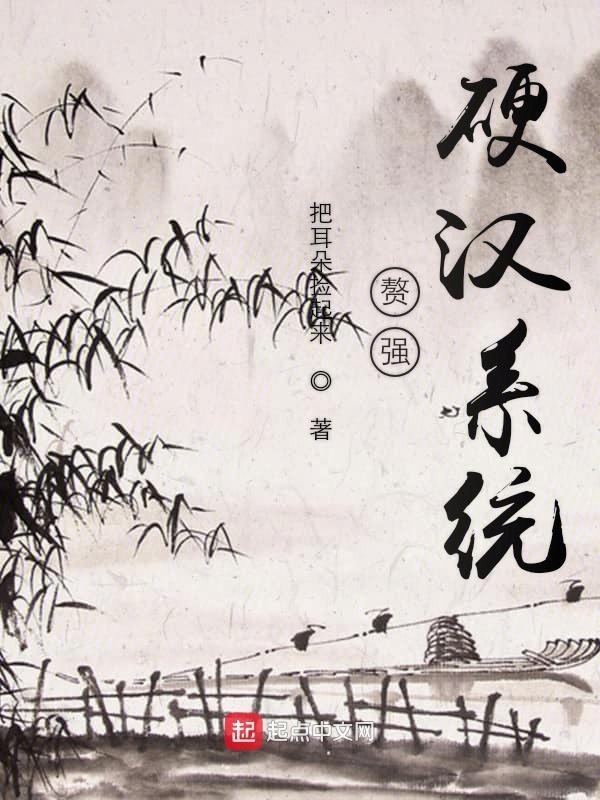 硬汉系统
赘强
把耳朵捡起来 ◎ 著
起 起点中文网